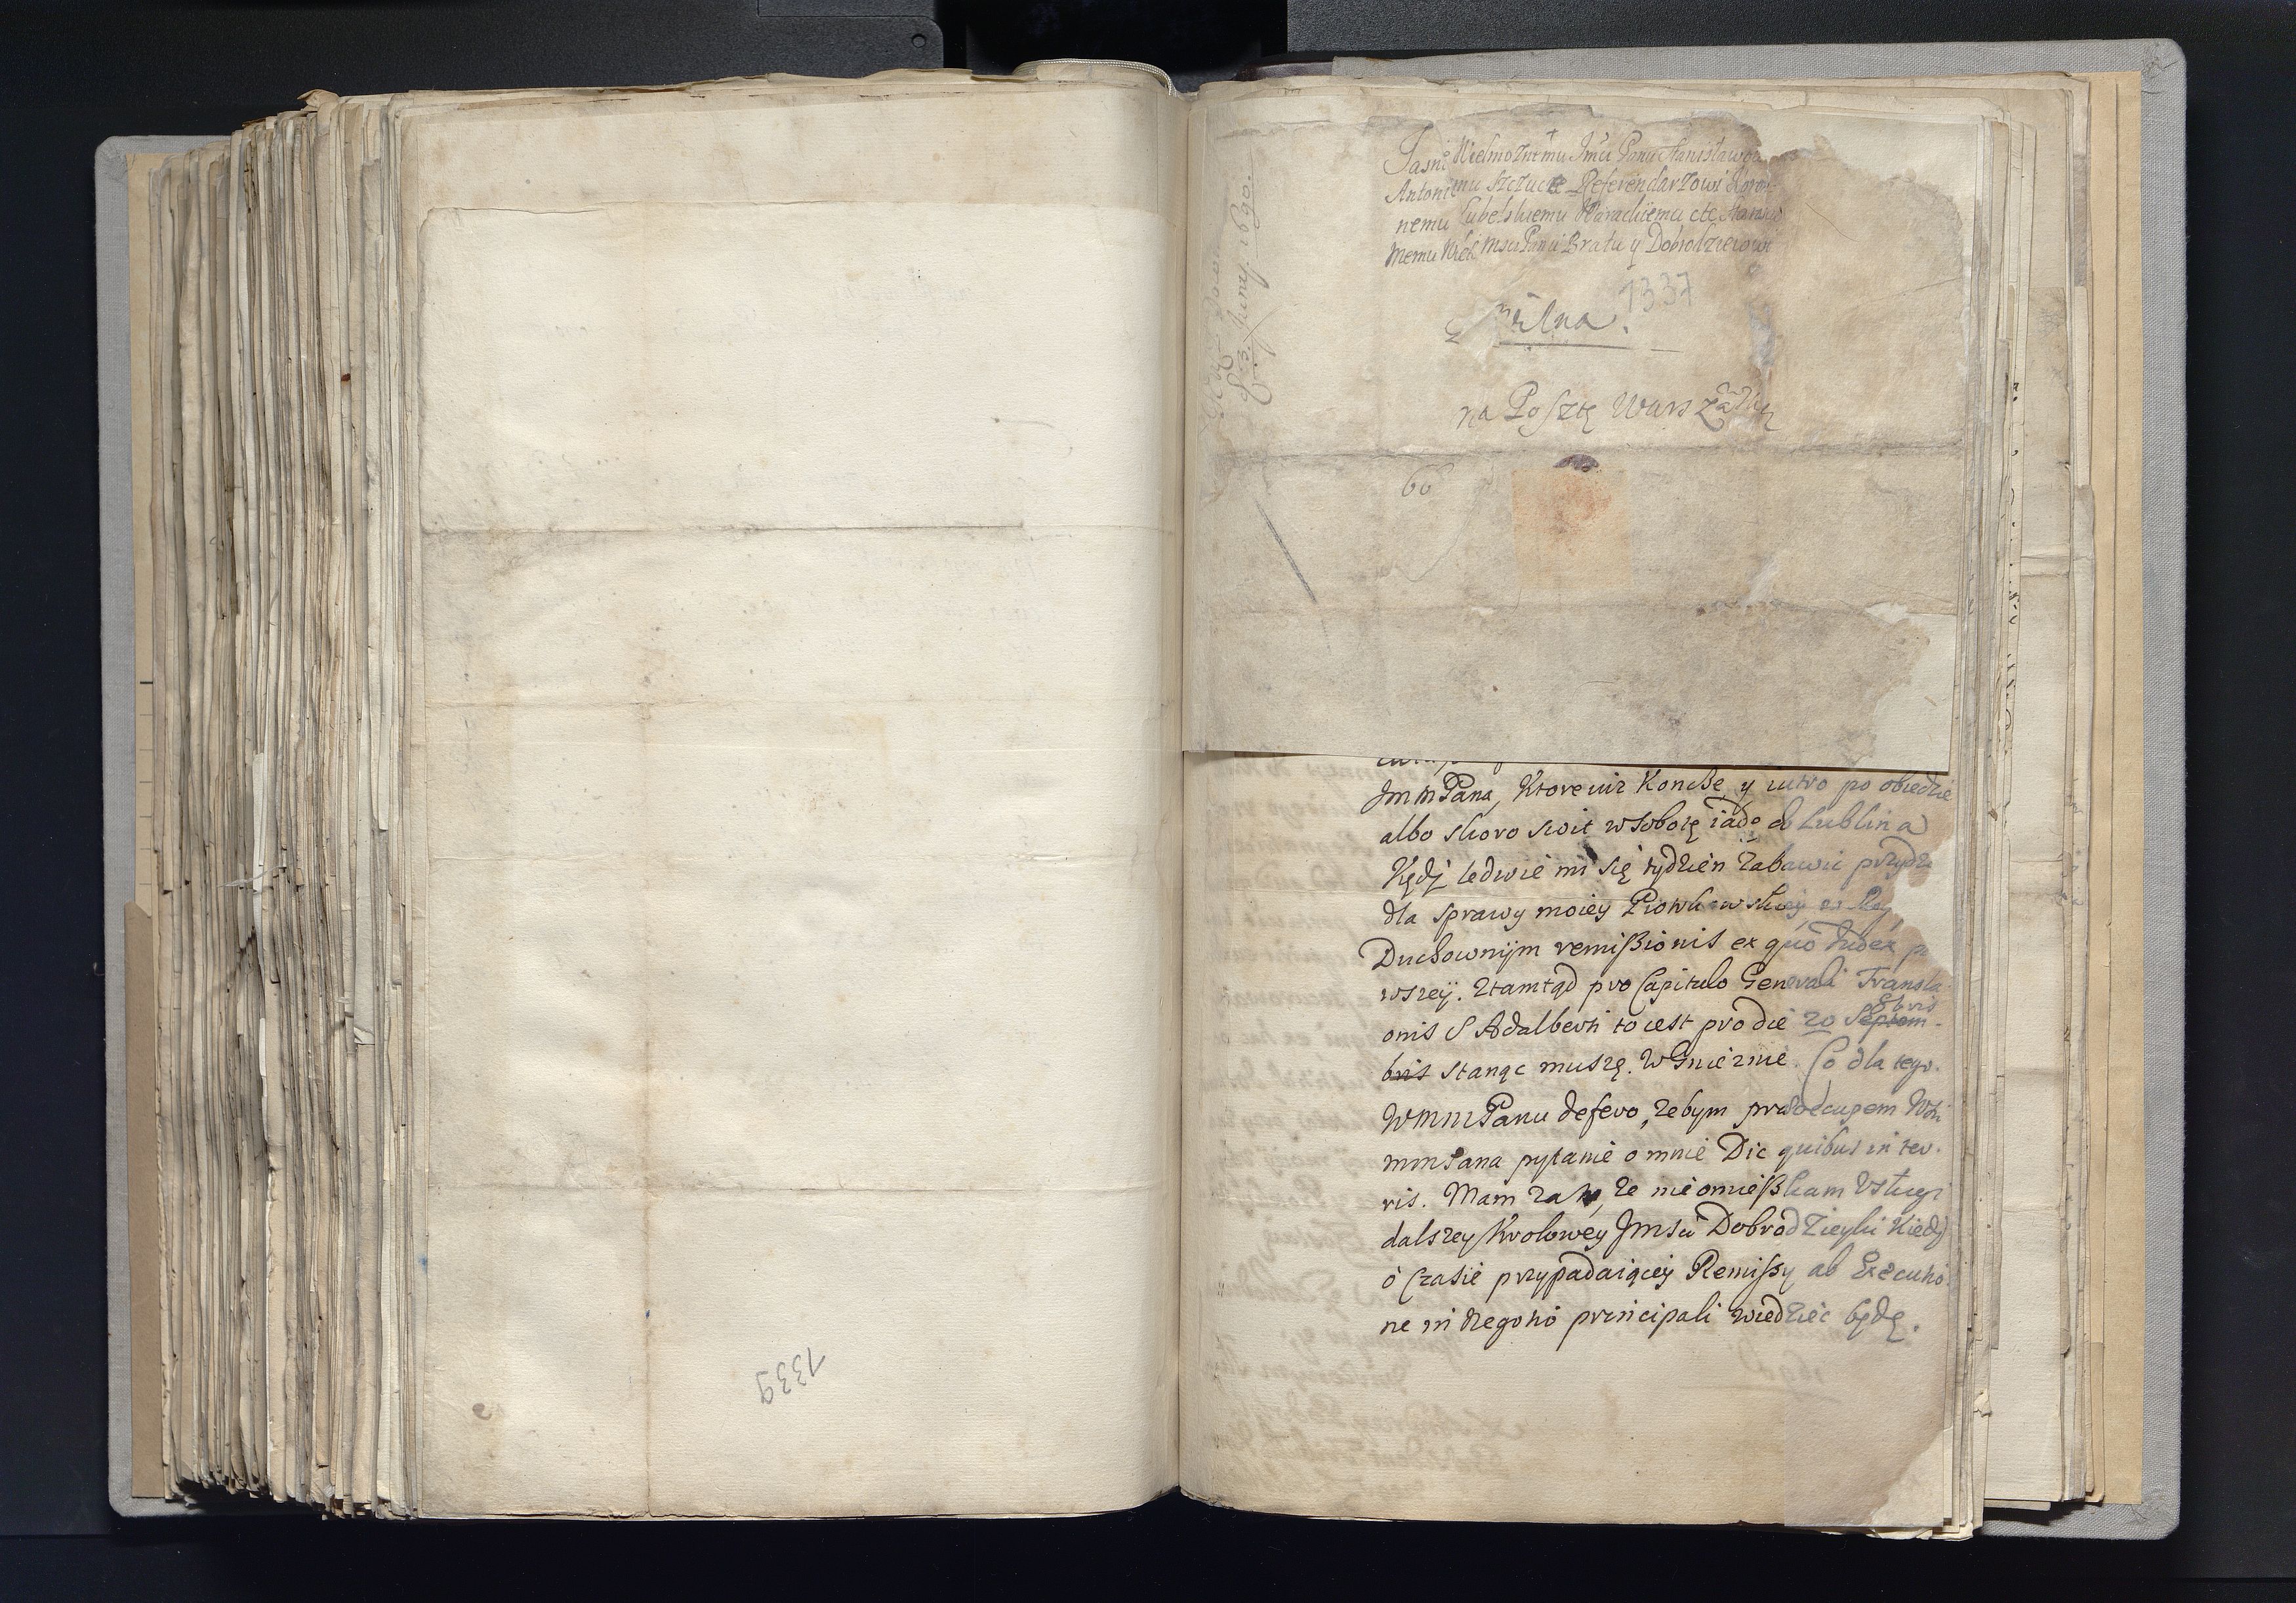 1339
Jasnie Wielmożnemu Jmci Panu Stanisławowi
Antoniemu Szczuce Referendarzowi Koron
nemu Lubelskiemu Warackiemu etc Staroscie
Memu Wielce Mscu Panu Bratu y Dobrodzieiowi
1337
Pilna.
na Posztę Warszaws
66
3. Junÿ. 1690.
JmmPana, Ktore iuż Konczę, y iutro po obiedzie
albo skoro swit w Sobotę iadę do Lublina
Kędÿ ledwie mi się tydzien zabawic przydzie
dla sprawy moiey Piotrkowskiey
Duchownÿm remißionis ex quo Iudex
wszeÿ. Ztamtąd pro Capitulo Generali Transla
onis S Adalberti to iest pro die 20 Septem 8bris
bris stanąc muszę. W Gnieznie. Co dla tego.
WMMPanu defero, zebym praeoccupem
mmPana pytanie o mnie Dic quibus in ter.
ris. Mam za to, ze nie omießkam Usługi
dalszey Krolowey Jmsci Dobrodzieyki Kiedÿ
o czasie przypadaiąceÿ Remißy ab Executio
ne in Regono principali wiedziec będę.